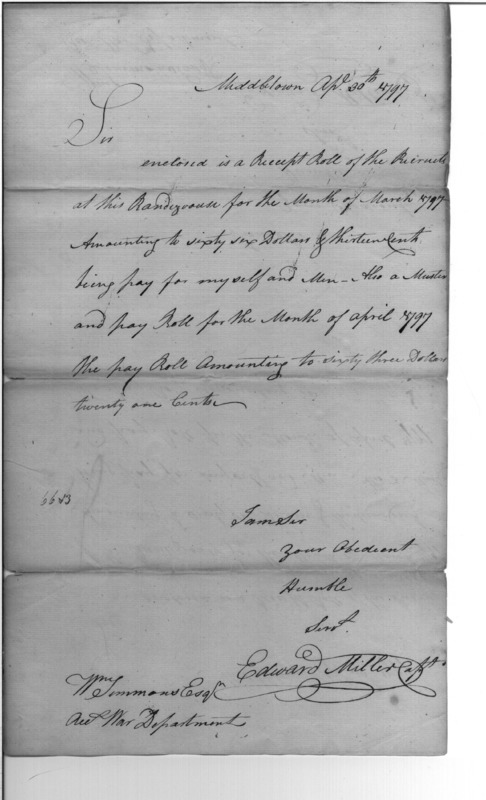 Middletown Apl. 30th 1797
Sir
enclosed is a Receipt Roll of the Recruits
at this Randezvouse for the Month of March 1797
Amounting to sixty six Dollars & thirteen Cents
being pay for myself and Men - Also a Muster
and pay Roll for the Month of april 1797
the pay Roll Amounting to sixty three Dollars
twenty one Cents
I am Sir
Your Obedient
Humble
Servt.
Edward Miller Capt
Wm Simmons Esqr
Acct War Department